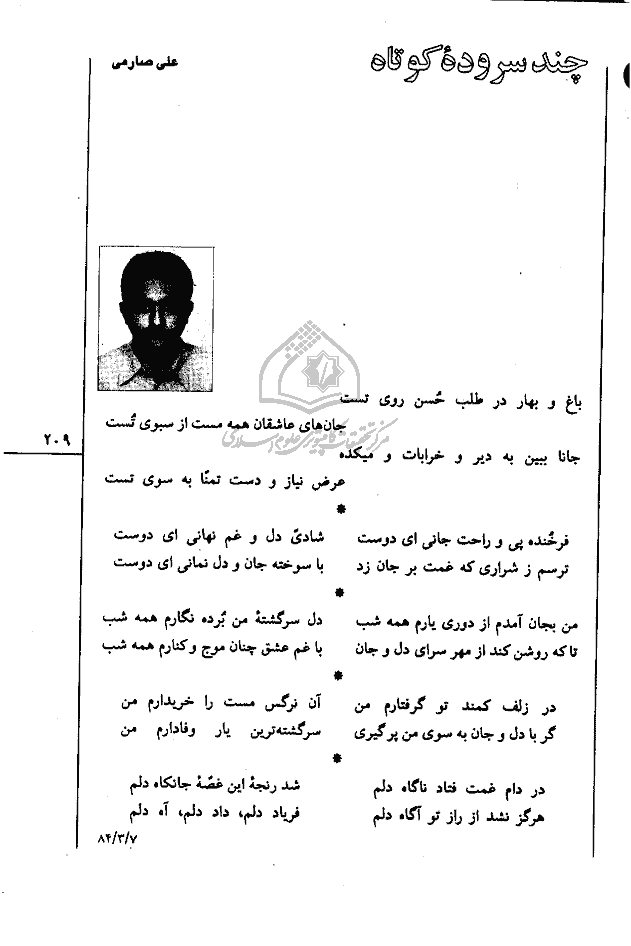 چند سرودهٔ کوتاه
علی صارمی
باغ و بهار در طلب حُسن روی تست
جان‌های عاشقان همه مست از سبوی تُست
جانا ببین به دیر و خرابات و میکده
عرض نیاز و دست تمنّا به سوی تست
*
فرخُنده پی و راحت جانی ای دوست شادیّ دل و غم نهانی ای دوست
ترسم ز شراری که غمت بر جان زد با سوخته جان و دل نمانی ای دوست
*
من بجان آمدم از دوری یارم همه شب دل سرگشتهٔ من بُرده نگارم همه شب
تا که روشن کند از مهر سرای دل و جان با غم عشق چنان موج و کنارم همه شب
*
در زلف کمند تو گرفتارم من آن نرگس مست را خریدارم من
گر با دل و جان به سوی من پرگیری سرگشته‌ترین یار وفادارم من
*
در دام غمت فتاد ناگاه دلم شد رنجهٔ این غصّهٔ جانکاه دلم
هرگز نشد از راز تو آگاه دلم فریاد دلم، داد دلم، آه دلم
۸۴/۳/۷
۲۰۹
مرکز تحقیقات کامپیوتری علوم اسلامی